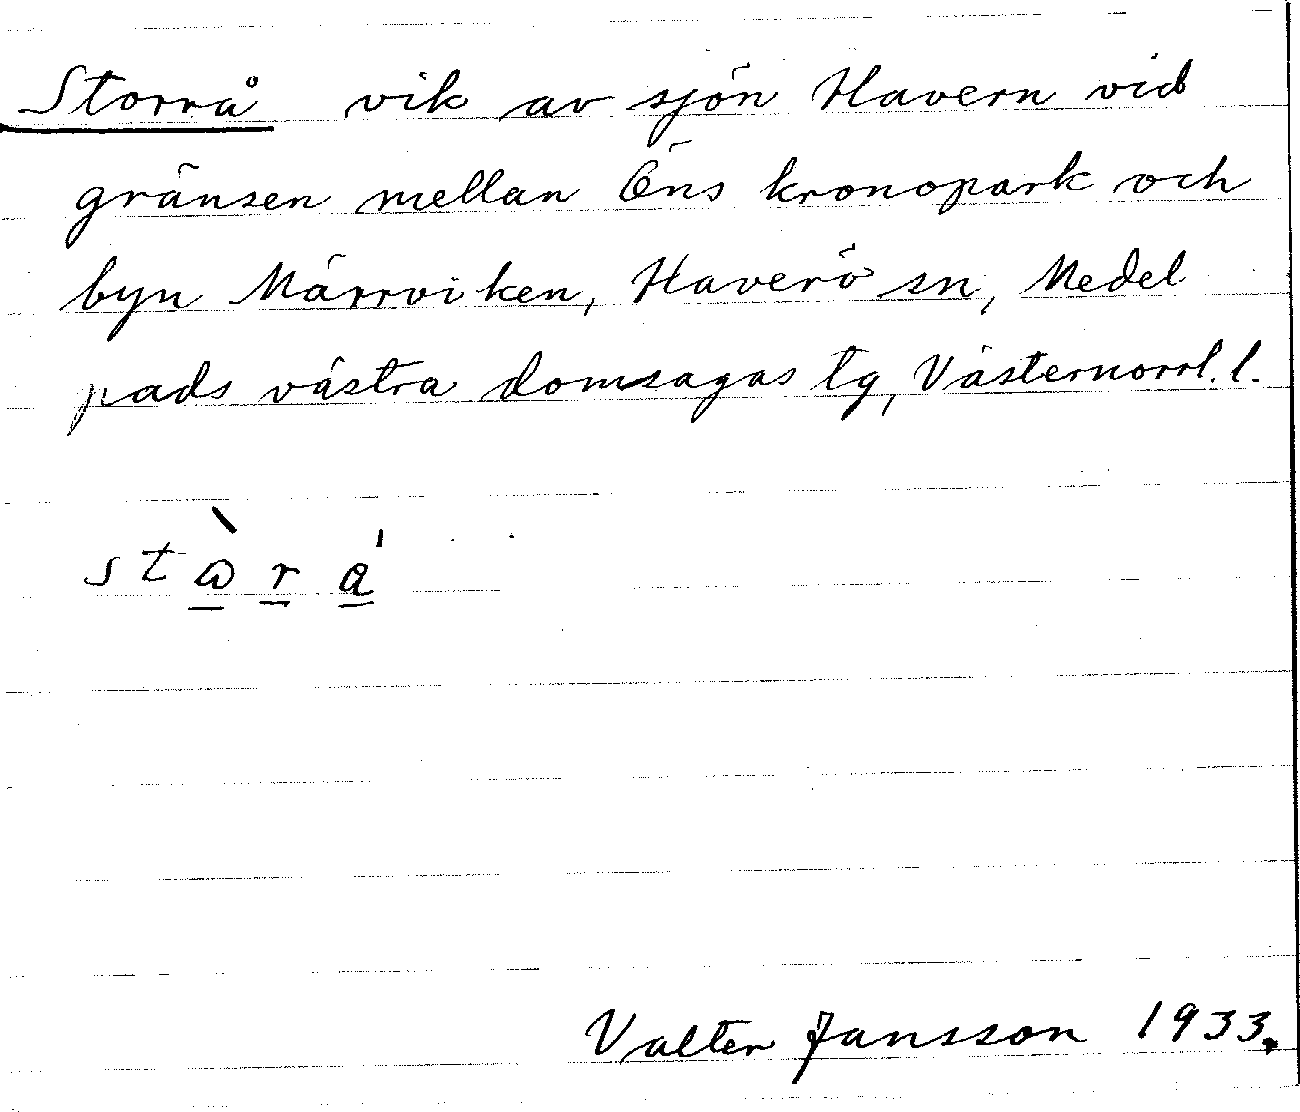 Storrå vik av sjön Havern vid
gränsen mellan Öns kronopark och
byn Märrviken, Haverö sn, Medel
pads västra domsagas tg, Västernorrl. l.
Valter Jansson 1933.